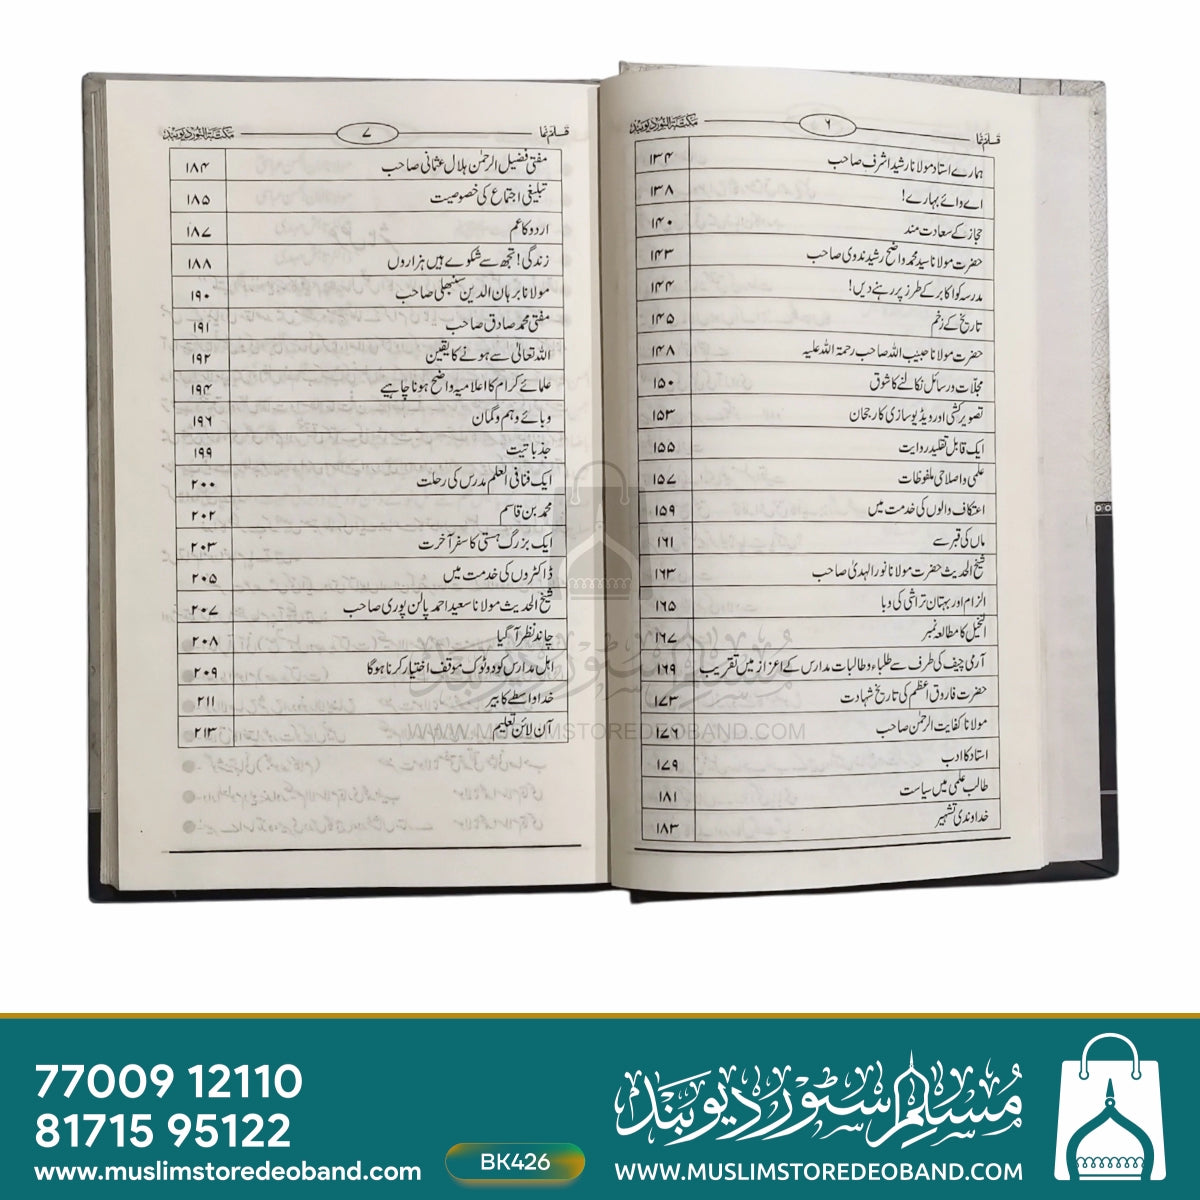 قلم نما ۶ مکتبۃ النور دیوبند
ہمارے استاد مولانا رشید اشرف صاحب ۱۳۴
اے وائے بہارے! ۱۳۸
حجاز کے سعادت مند ۱۴۰
حضرت مولانا سید محمد واضح رشید ندوی صاحب ۱۴۳
مدرسہ کو اکابر کے طرز پر رہنے دیں! ۱۴۴
تاریخ کے زخم ۱۴۵
حضرت مولانا حبیب اللہ صاحب رحمۃ اللہ علیہ ۱۴۸
مجلّات ورسائل نکالنے کا شوق ۱۵۰
تصویر کشی اور ویڈیو سازی کا رجحان ۱۵۳
ایک قابل تقلید روایت ۱۵۵
علمی و اصلاحی ملفوظات ۱۵۷
اعتکاف والوں کی خدمت میں ۱۵۹
ماں کی قبر سے ۱۶۱
شیخ الحدیث حضرت مولانا نور الہدیٰ صاحب ۱۶۳
الزام اور بہتان تراشی کی وبا ۱۶۵
النخیل کا مطالعہ نمبر ۱۶۷
آرمی چیف کی طرف سے طلباء و طالبات مدارس کے اعزاز میں تقریب ۱۶۹
حضرت فاروق اعظم کی تاریخ شہادت ۱۷۳
مولانا کفایت الرحمٰن صاحب ۱۷۶
استاد کا ادب ۱۷۹
طالب علمی میں سیاست ۱۸۱
خداوندی تشہیر ۱۸۳
قلم نما ۷ مکتبۃ النور دیوبند
مفتی فضیل الرحمٰن ہلال عثمانی صاحب ۱۸۴
تبلیغی اجتماع کی خصوصیت ۱۸۵
اردو کا غم ۱۸۷
زندگی! تجھ سے شکوے ہیں ہزاروں ۱۸۸
مولانا برہان الدین سنبھلی صاحب ۱۹۰
مفتی محمد صادق صاحب ۱۹۱
اللہ تعالیٰ سے ہونے کا یقین ۱۹۲
علمائے کرام کا اعلامیہ واضح ہونا چاہیے ۱۹۴
وبائے وہم و گمان ۱۹۶
جذباتیت ۱۹۹
ایک فنا فی العلم مدرس کی رحلت ۲۰۰
محمد بن قاسم ۲۰۲
ایک بزرگ ہستی کا سفر آخرت ۲۰۳
ڈاکٹروں کی خدمت میں ۲۰۵
شیخ الحدیث مولانا سعید احمد پالن پوری صاحب ۲۰۷
چاند نظر آ گیا ۲۰۸
اہل مدارس کو دو ٹوک موقف اختیار کرنا ہوگا ۲۰۹
خدا واسطے کا بیر ۲۱۱
آن لائن تعلیم ۲۱۳
مسلم سٹور دیوبند
WWW.MUSLIMSTOREDEOBAND.COM
77009 12110
81715 95122
www.muslimstoredeoband.com
BK426
مسلم سٹور دیوبند
WWW.MUSLIMSTOREDEOBAND.COM